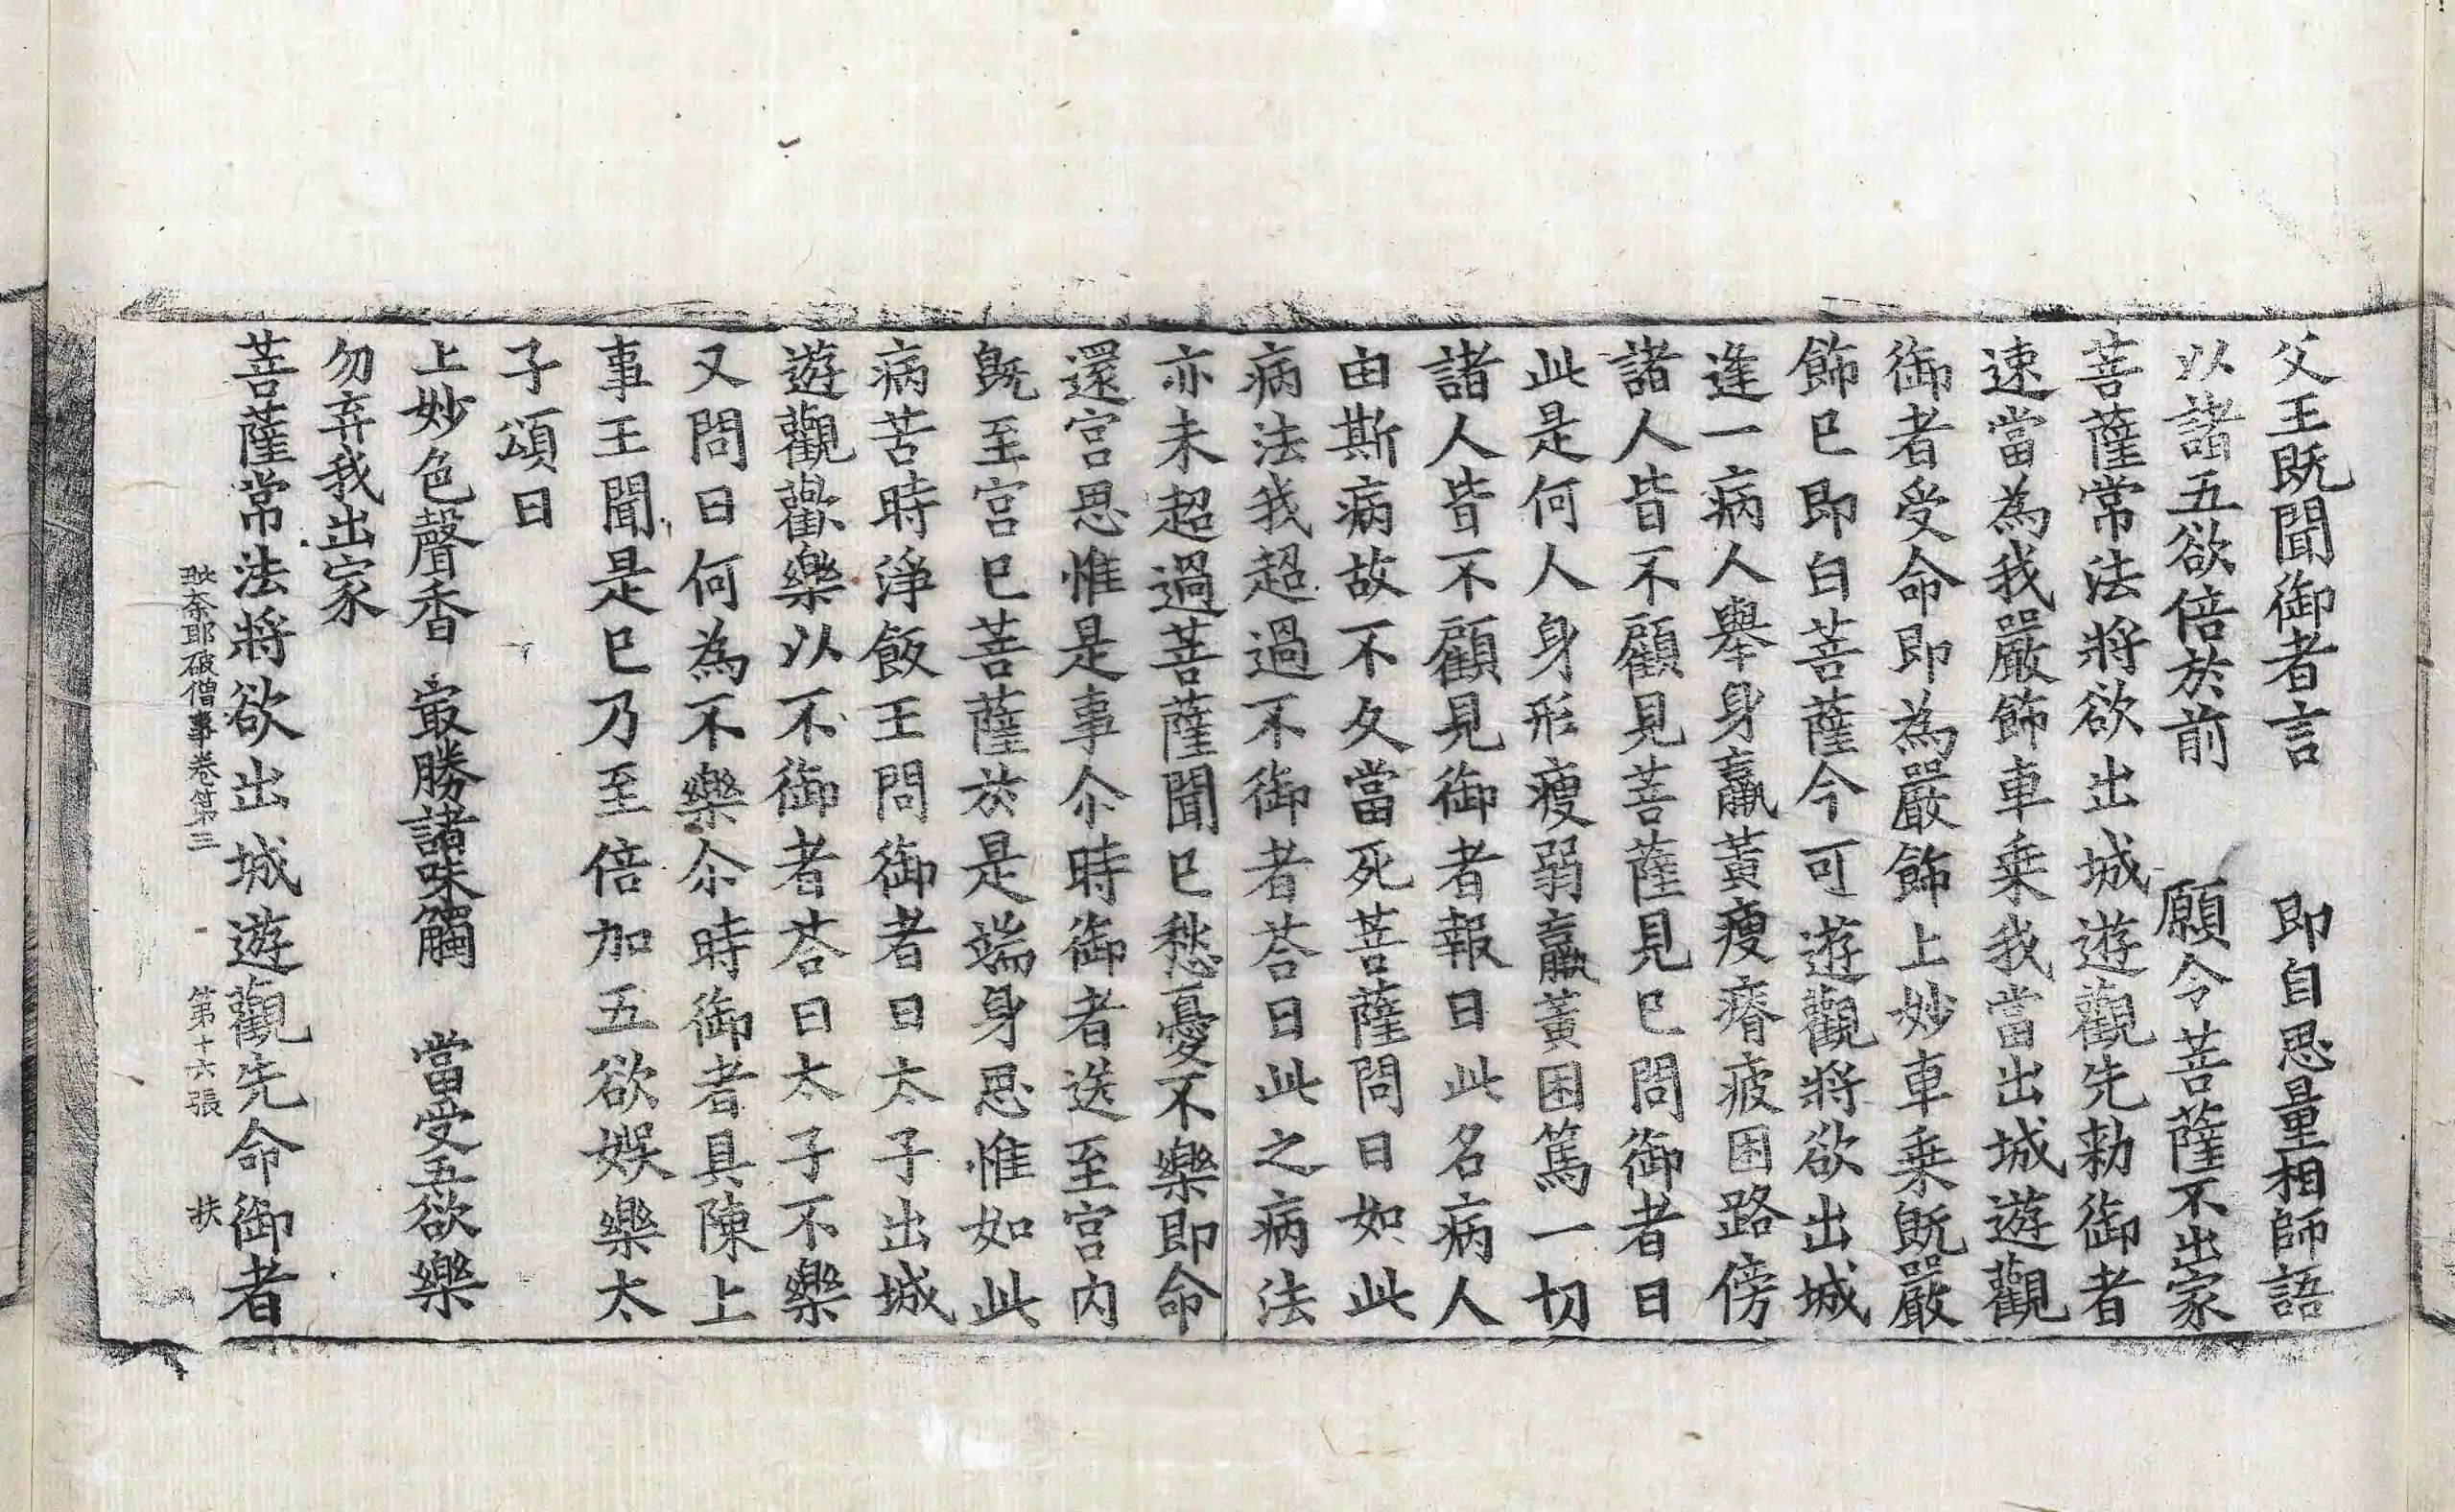 父王旣聞御者言　即自思量相師語
以諸五欲倍於前　願令菩薩不出家
菩薩常法將欲出城遊觀先勑御者
速當為我嚴飾車乗我當出城遊觀
御者受命即為嚴飾上妙車乗旣嚴
飾已即白菩薩今可遊觀將欲出城
逢一病人舉身羸黃瘦瘠疲困路傍
諸人皆不顧見菩薩見已問御者曰
此是何人身形瘦弱羸黃困篤一切
諸人皆不顧見御者報曰此名病人
由斯病故不久當死菩薩問曰如此
病法我超過不御者荅曰此之病法
亦未超過菩薩聞已愁憂不樂即命
還宮思惟是事尒時御者送至宮內
旣至宮已菩薩於是端身思惟如此
病苦時淨飯王問御者曰太子出城
遊觀歡樂以不御者荅曰太子不樂
又問曰何為不樂尒時御者具陳上
事王聞是已乃至倍加五欲娛樂太
子頌曰
上妙色聲香　㝡勝諸味觸　當受五欲樂
勿弃我出家
菩薩常法將欲出城遊觀先命御者
毗奈耶破僧事卷第三　第十六張　扶